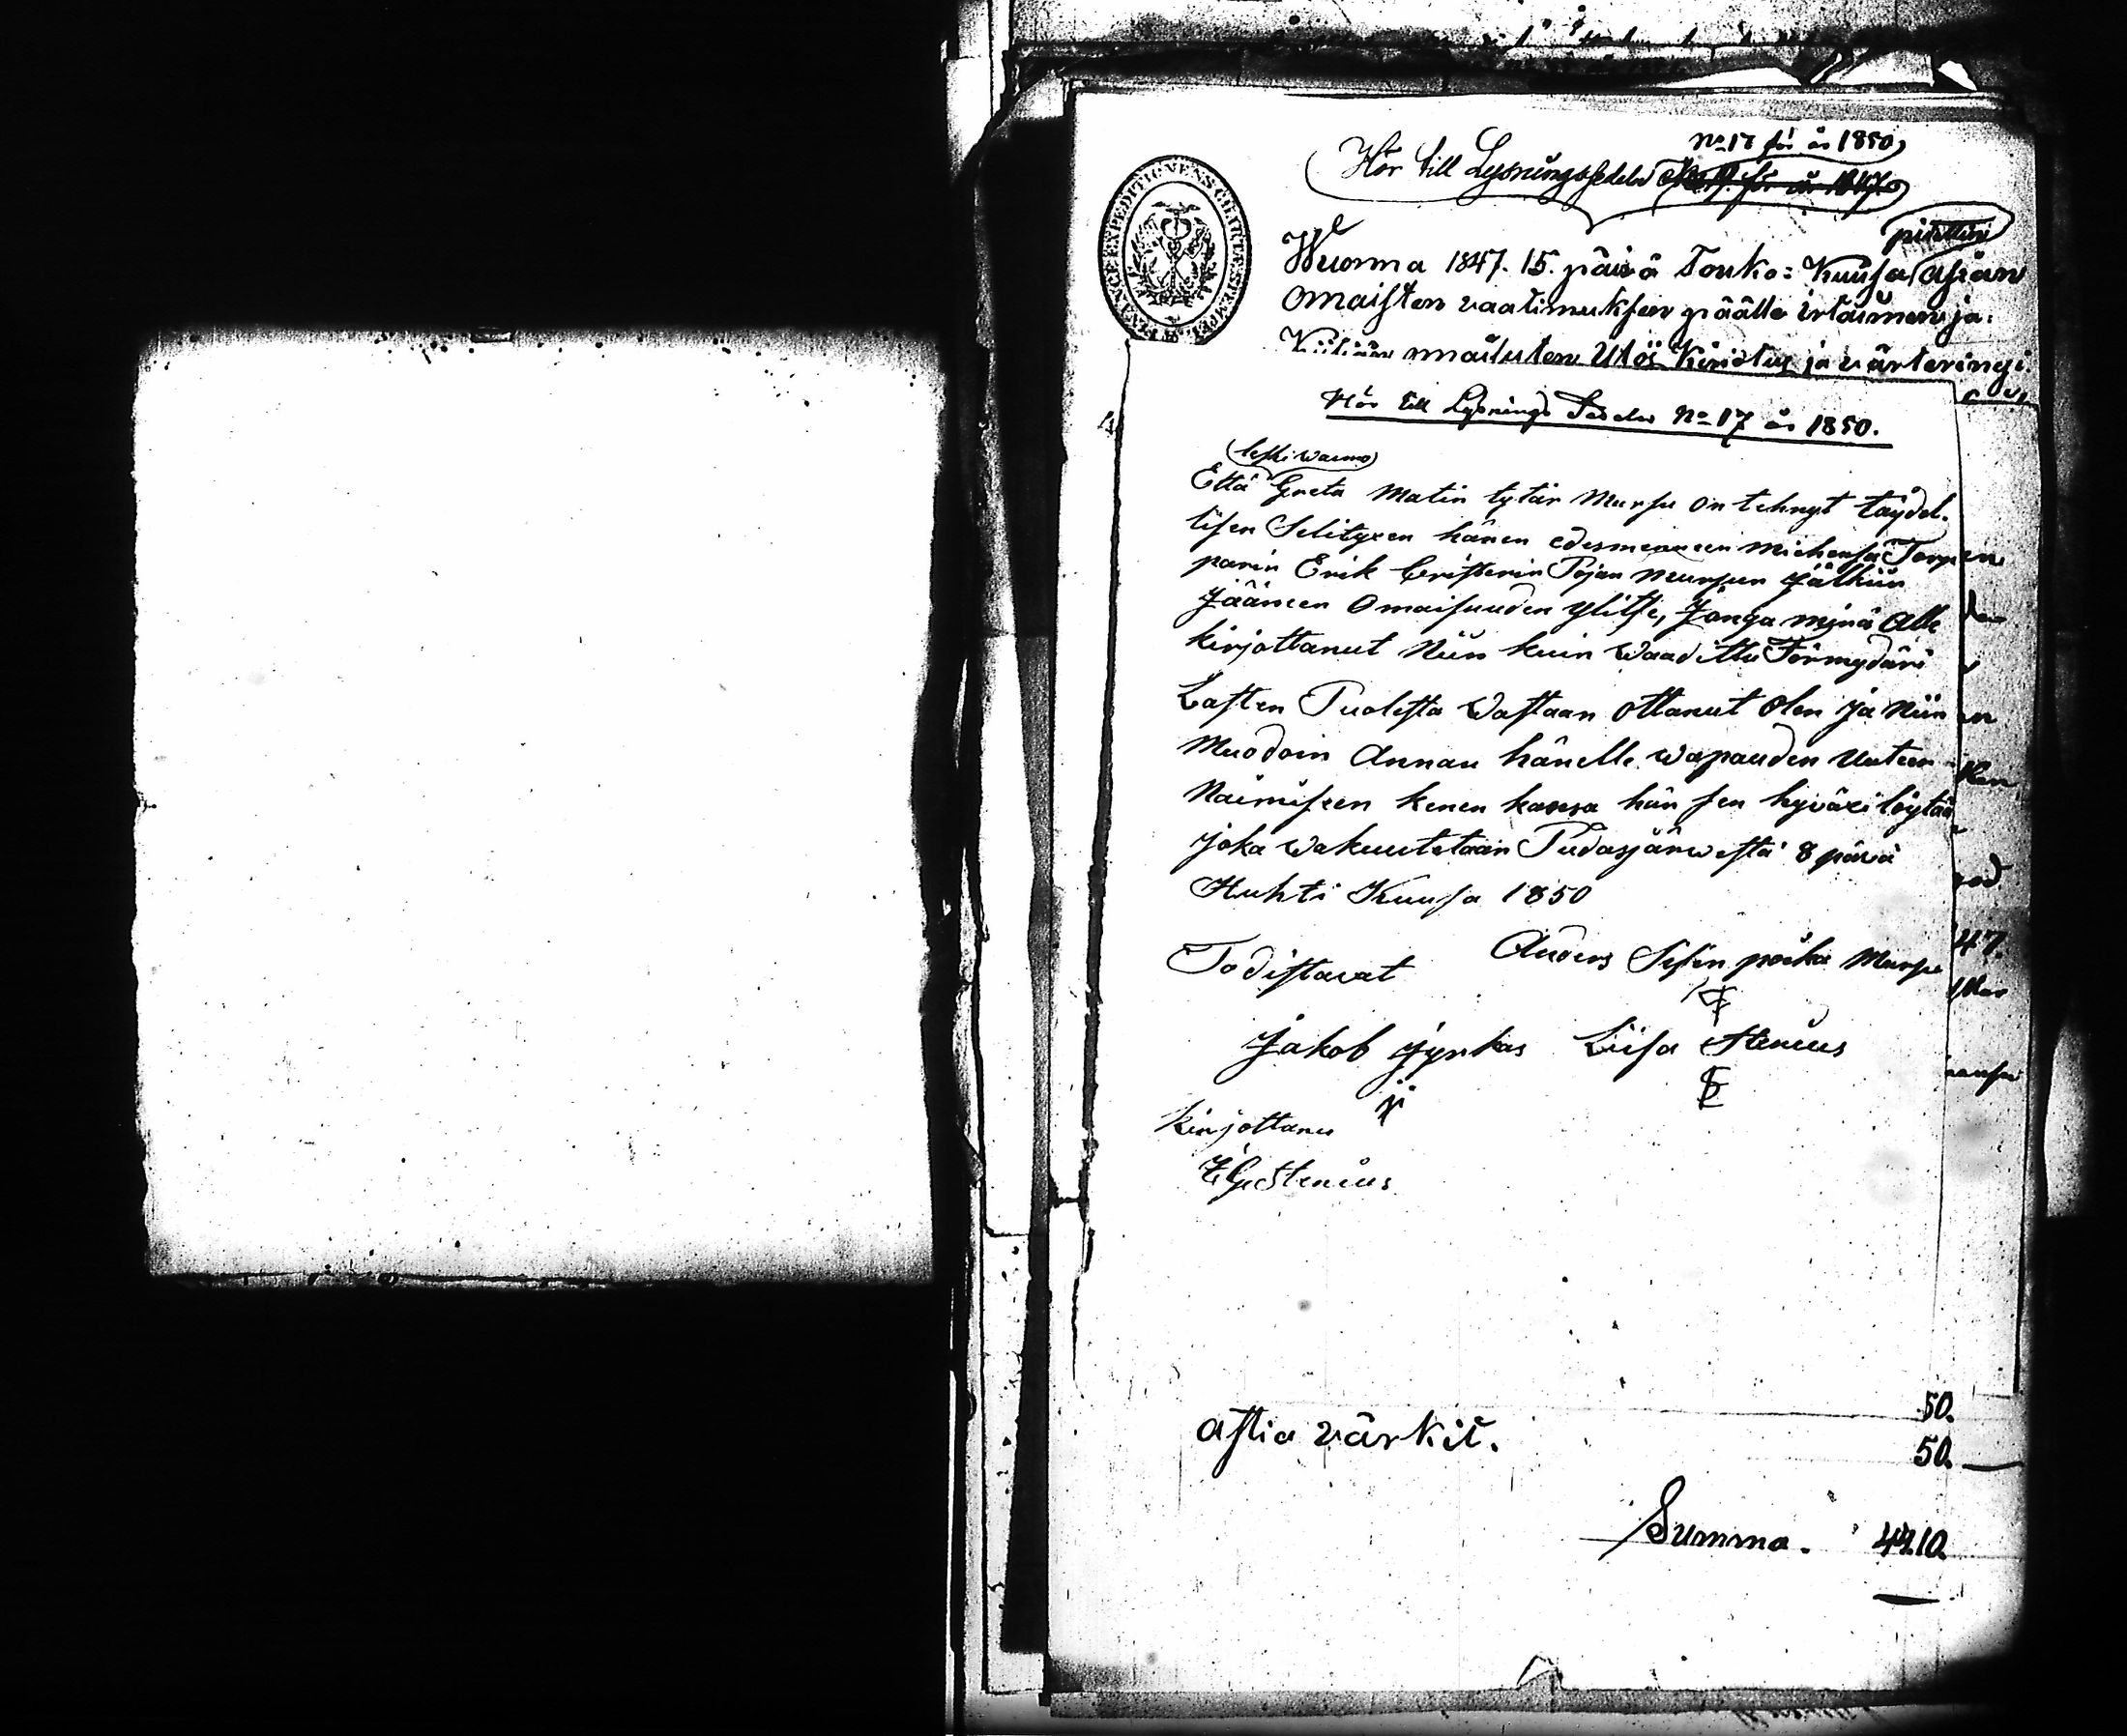 No 17 för år 1850
Hör till Lysningssedeln
FINANCE EXPEDITIONENS CHARTÆ STEMPEL
pidettiin
Wuonna 1847. 15. päivä Touko: Kuusa asian
omaisten vaatimuksen päälle irtaimen ja:
Kiitiän Ulös Kirjotus ja värteringi
Hör till Lysnings Sedeln No 17 år 1850.
leski waimo
Että Greta Matin tytär Mursu on tehnyt täydel.
lisen Selityxen hänen edesmenneen miehensä Torp
parin Erik Cristerin Pojan Mursun jälkiin
Jääneen Omaisuuden ylitse, Jonga minä Alle
kirjottanut Niin kuin Waadittu Förmydäri
Lasten Puolesta Wastaan ottanut olen ja Niin
Muodoin Annan hänelle wapauden Uuteen
Naimiseen kenen kanssa hän sen hyväxi löytää
joka wakuutetaan Pudasjärwestä 8 päivä
Huhti Kuusa 1850
Todistavat Anders Sifin poika Mursu
Jakob Jyrkas Liisa Stenius
kirjottanu
Stenius
47.
50.
astia värkit. 50.
Summa. 44.10.